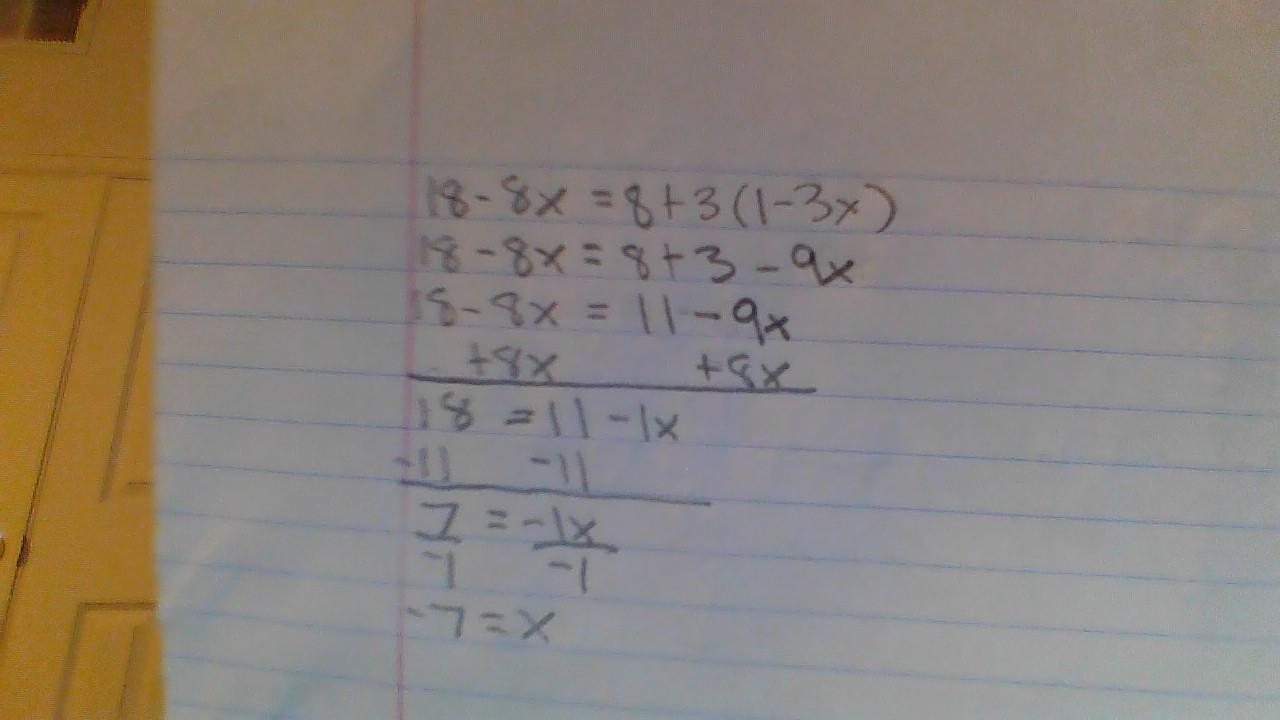 18-8x = 8+3(1-3x)
18-8x = 8+3-9x
18-8x = 11-9x
+8x +8x
18 = 11-1x
-11 -11
7 = -1x
-1 -1
-7 = x